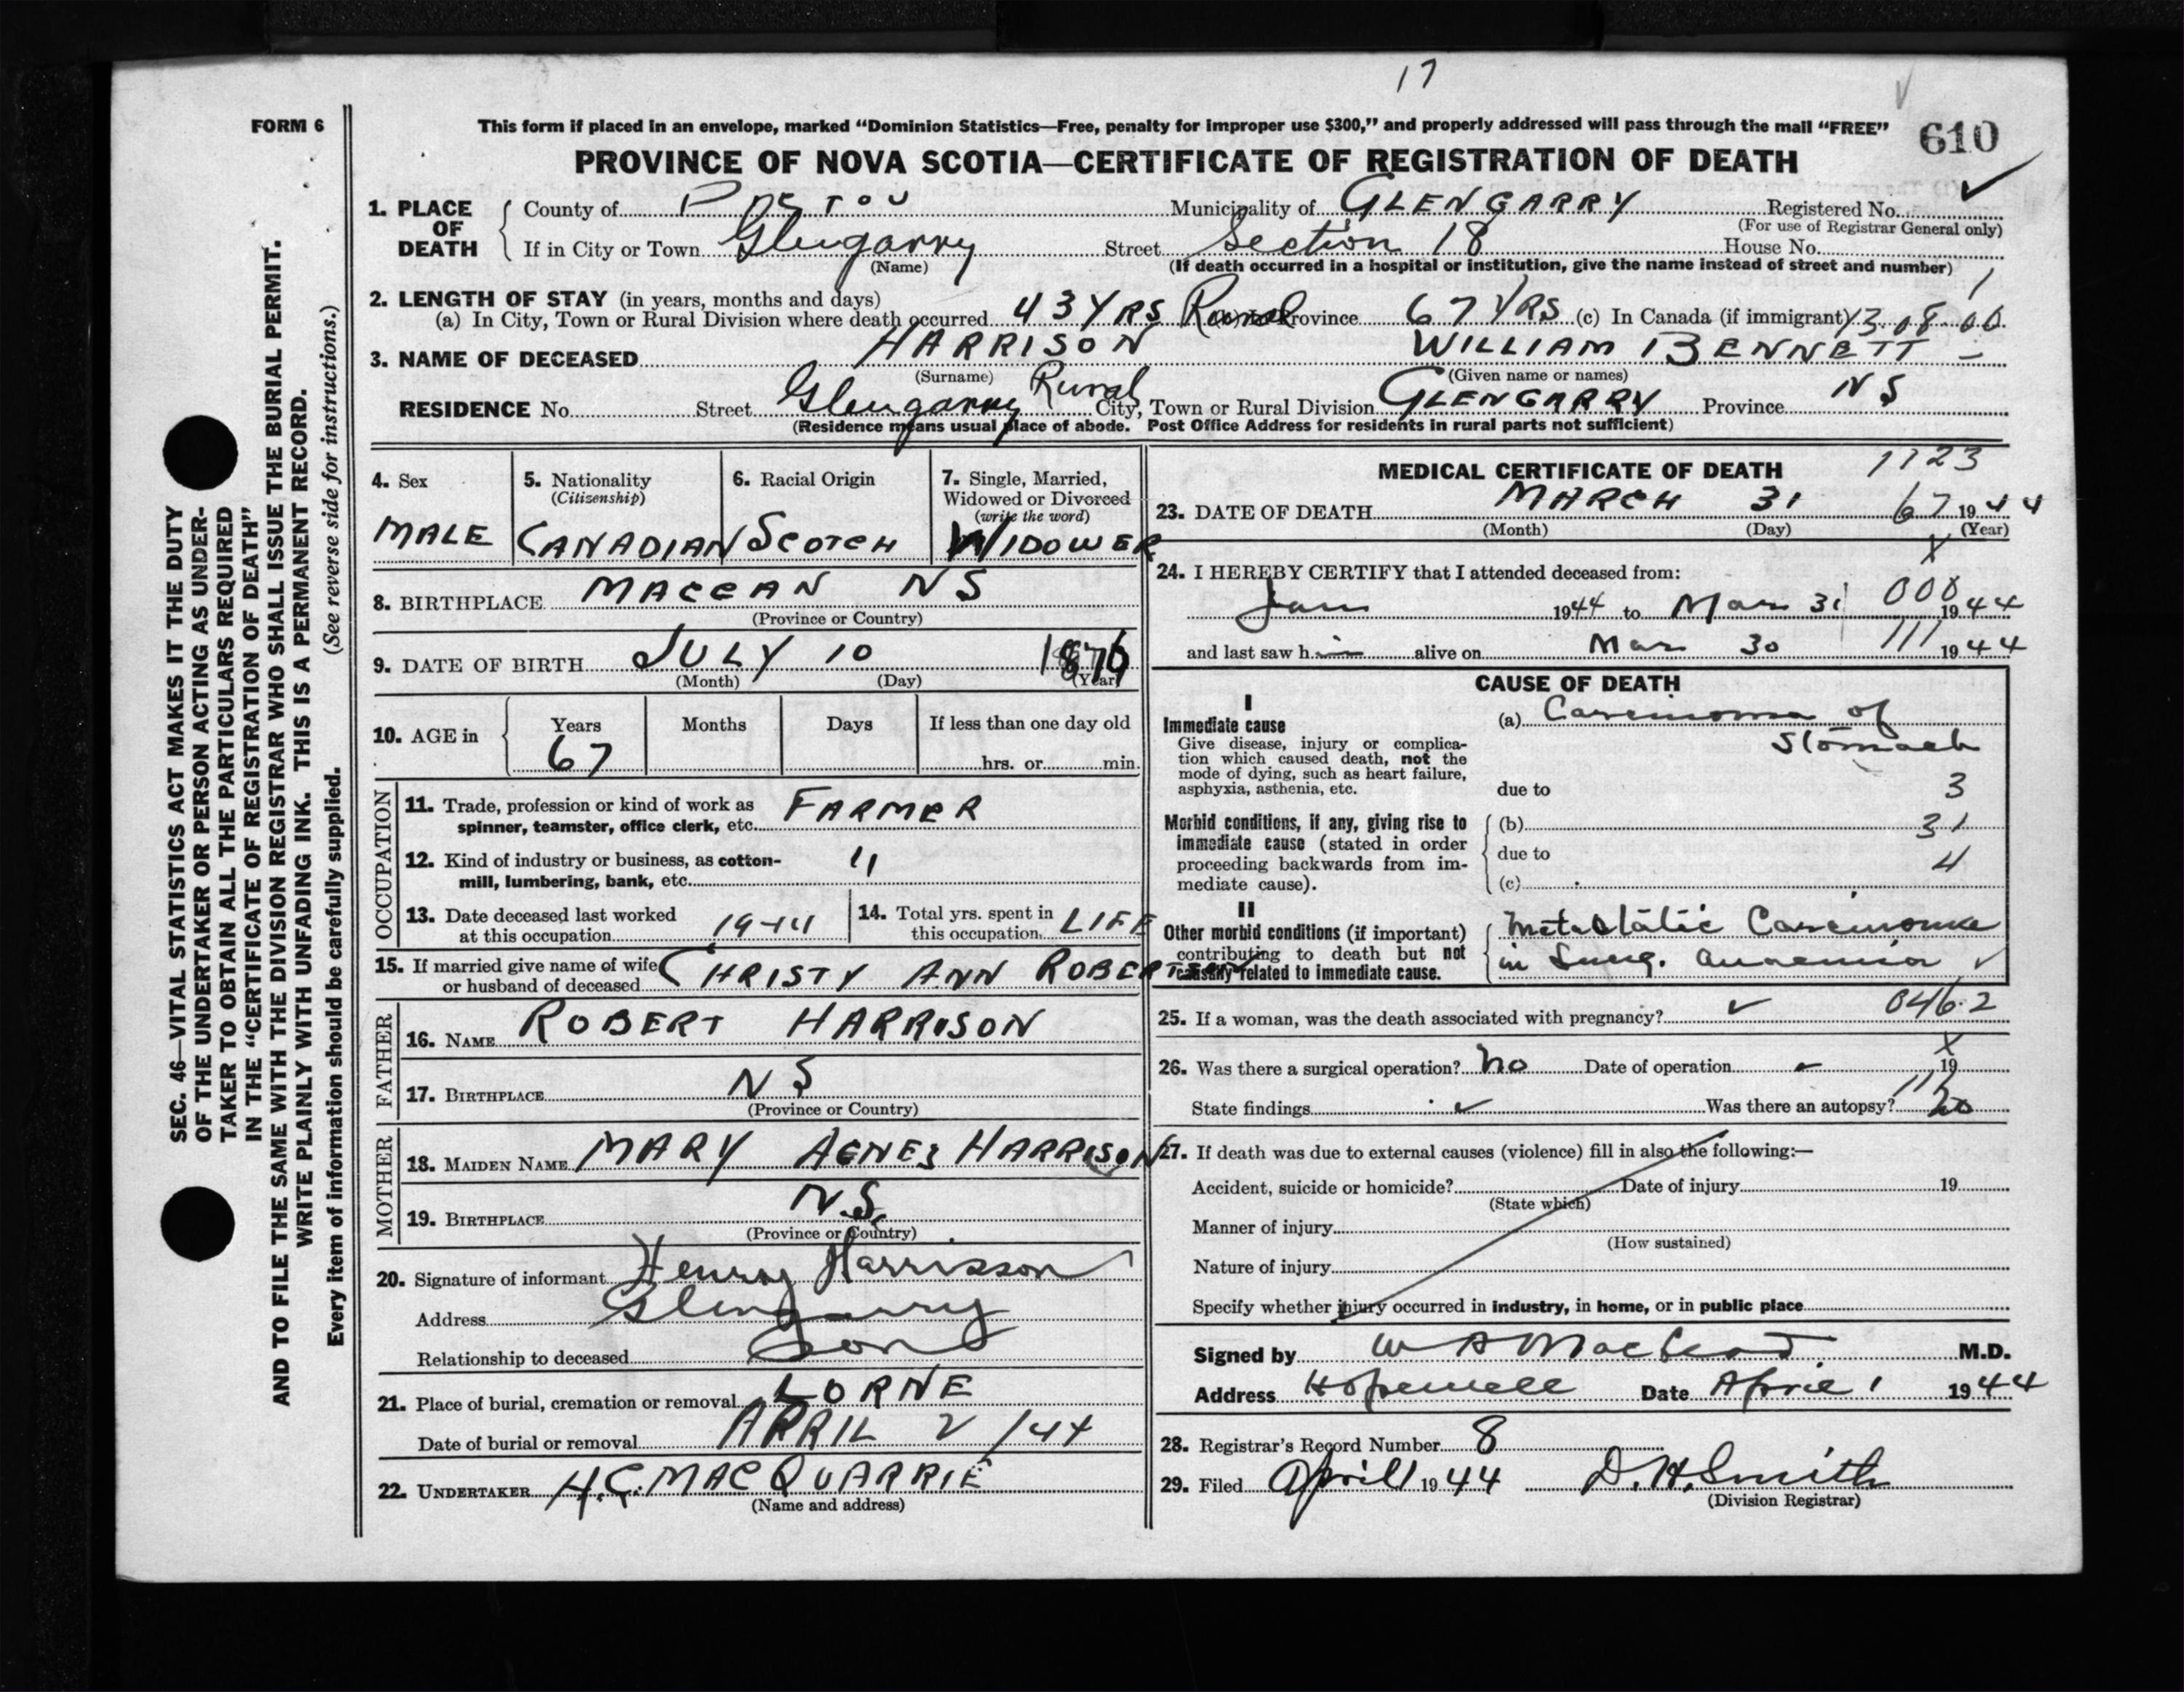 17
FORM 6
This form if placed in an envelope, marked "Dominion Statistics—Free, penalty for improper use $300," and properly addressed will pass through the mail "FREE"
610
PROVINCE OF NOVA SCOTIA—CERTIFICATE OF REGISTRATION OF DEATH
1. PLACE OF DEATH
County of PICTOU Municipality of GLENGARRY Registered No.
(For use of Registrar General only)
If in City or Town Glengarry Street Section 18 House No.
(Name) (If death occurred in a hospital or institution, give the name instead of street and number)
2. LENGTH OF STAY (in years, months and days)
(a) In City, Town or Rural Division where death occurred 43 YRS Rural Province 67 YRS (c) In Canada (if immigrant)
3. NAME OF DECEASED HARRISON WILLIAM BENNETT
(Surname) (Given name or names)
RESIDENCE No. Street Glengarry Rural City, Town or Rural Division GLENGARRY Province NS
(Residence means usual place of abode. Post Office Address for residents in rural parts not sufficient)
4. Sex
MALE
5. Nationality
(Citizenship)
CANADIAN
6. Racial Origin
SCOTCH
7. Single, Married,
Widowed or Divorced
(write the word)
WIDOWER
8. BIRTHPLACE MACCAN NS
(Province or Country)
9. DATE OF BIRTH JULY 10 1876
(Month) (Day) (Year)
10. AGE in Years Months Days If less than one day old
67 hrs. or min.
OCCUPATION
11. Trade, profession or kind of work as
spinner, teamster, office clerk, etc. FARMER
12. Kind of industry or business, as cotton-
mill, lumbering, bank, etc. "
13. Date deceased last worked
at this occupation
14. Total yrs. spent in
this occupation LIFE
15. If married give name of wife
or husband of deceased CHRISTY ANN ROBERTSON
FATHER
16. NAME ROBERT HARRISON
17. BIRTHPLACE NS
(Province or Country)
MOTHER
18. MAIDEN NAME MARY AGNES HARRISON
19. BIRTHPLACE N.S.
(Province or Country)
20. Signature of informant Henry Harrisson
Address Glengarry
Relationship to deceased Son
21. Place of burial, cremation or removal LORNE
Date of burial or removal APRIL 2 /44
22. UNDERTAKER H.C. MACQUARRIE
(Name and address)
MEDICAL CERTIFICATE OF DEATH 1123
23. DATE OF DEATH MARCH 31 67 1944
(Month) (Day) (Year)
X
24. I HEREBY CERTIFY that I attended deceased from:
Jan 1944 to Mar 31 000 1944
and last saw h im alive on Mar 30 111 1944
CAUSE OF DEATH
I
Immediate cause
Give disease, injury or complica-
tion which caused death, not the
mode of dying, such as heart failure,
asphyxia, asthenia, etc.
(a) Carcinoma of
Stomach
due to 3
Morbid conditions, if any, giving rise to
immediate cause (stated in order
proceeding backwards from im-
mediate cause).
(b) 31
due to 4
(c)
II
Other morbid conditions (if important)
contributing to death but not
causally related to immediate cause.
Metastatic Carcinoma
in Lung. Anaemia
25. If a woman, was the death associated with pregnancy? 046.2
26. Was there a surgical operation? No Date of operation X 19
State findings Was there an autopsy? No
27. If death was due to external causes (violence) fill in also the following:—
Accident, suicide or homicide? Date of injury 19
(State which)
Manner of injury
(How sustained)
Nature of injury
Specify whether injury occurred in industry, in home, or in public place
Signed by W A MacLeod M.D.
Address Hopewell Date April 1 1944
28. Registrar's Record Number 8
29. Filed April 1 1944 D. H. Smith
(Division Registrar)
SEC. 46—VITAL STATISTICS ACT MAKES IT THE DUTY
OF THE UNDERTAKER OR PERSON ACTING AS UNDER-
TAKER TO OBTAIN ALL THE PARTICULARS REQUIRED
IN THE "CERTIFICATE OF REGISTRATION OF DEATH"
AND TO FILE THE SAME WITH THE DIVISION REGISTRAR WHO SHALL ISSUE THE BURIAL PERMIT.
WRITE PLAINLY WITH UNFADING INK. THIS IS A PERMANENT RECORD.
Every item of information should be carefully supplied. (See reverse side for instructions.)